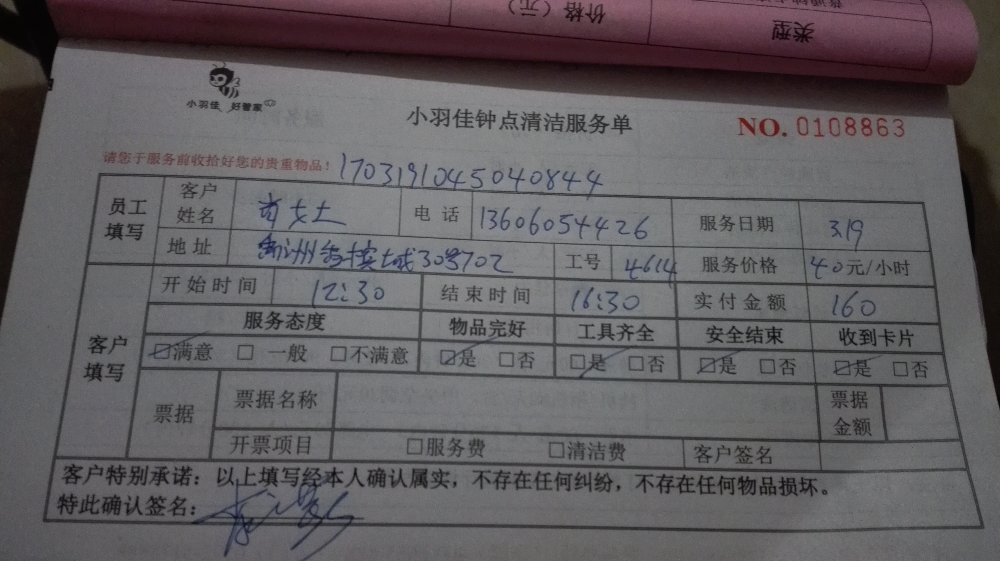 价格（元）
类型
小羽佳 好管家
小羽佳钟点清洁服务单
NO. 0108863
请您于服务前收拾好您的贵重物品！
1703191045040844
员工填写
客户姓名 女士 电话 13606054426 服务日期 3.19
地址 30号702 工号 4614 服务价格 40元/小时
客户填写
开始时间 12:30 结束时间 16:30 实付金额 160
服务态度 物品完好 工具齐全 安全结束 收到卡片
☑满意 □一般 □不满意 ☑是 □否 ☑是 □否 ☑是 □否 ☑是 □否
票据 票据名称 票据金额
开票项目 □服务费 □清洁费 客户签名
客户特别承诺：以上填写经本人确认属实，不存在任何纠纷，不存在任何物品损坏。
特此确认签名：